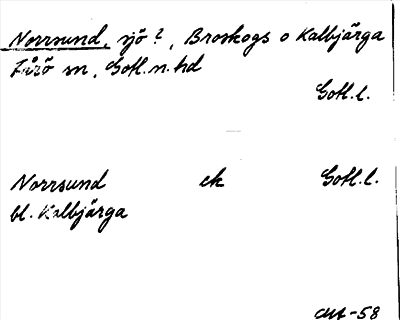 Norrsund, sjö?, Broskogs o Kalbjärga
Fårö sn, Gotl. n. hd
Gotl. l.
Norrsund ek Gotl. l.
bl. Kalbjärga
-58